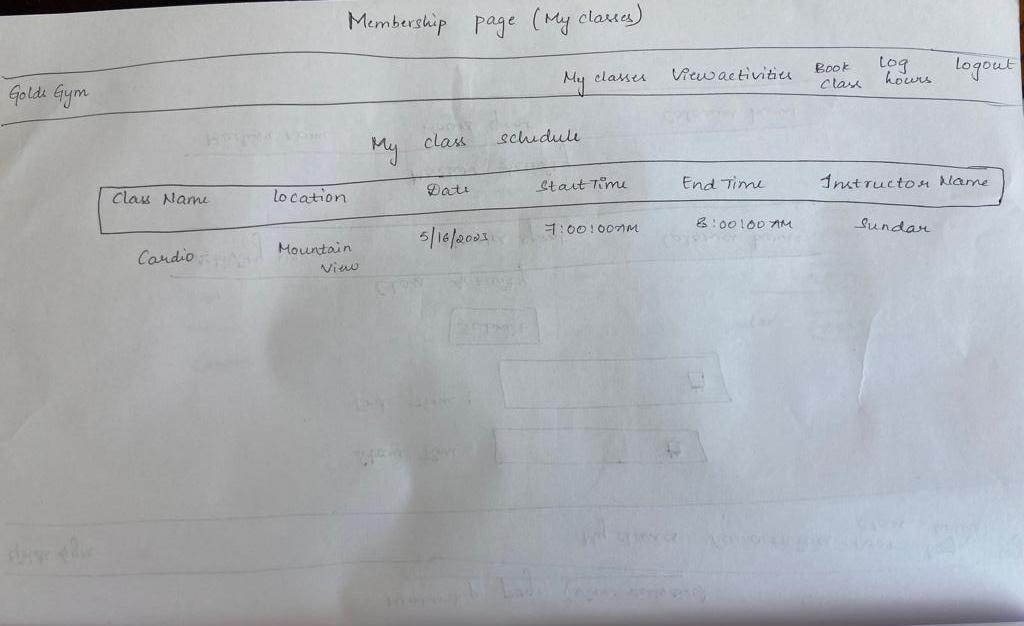 Membership page (My classes)
Golds Gym My classes View activities Book Class Log hours Logout
My class schedule
Class Name Location Date Start Time End Time Instructor Name
Cardio Mountain View 5/16/2023 7:00:00 AM 8:00:00 AM Sundar